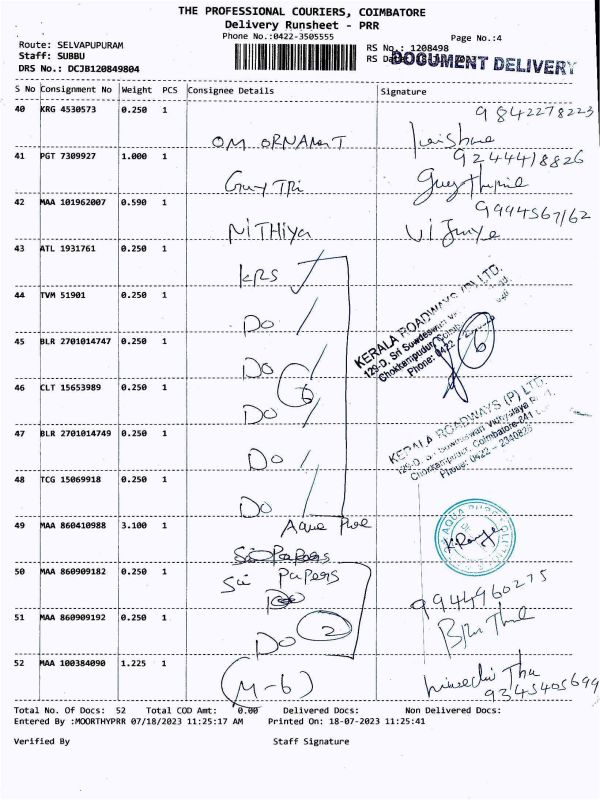 THE PROFESSIONAL COURIERS, COIMBATORE
Delivery Runsheet - PRR
Phone No.:0422-3505555
Page No.:4
Route: SELVAPUPURAM
Staff: SUBBU
DRS No.: DCJB120849804
RS No.: 1208498
RS
DOCUMENT DELIVERY
S No Consignment No Weight PCS Consignee Details Signature
40 KRG 4530573 0.250 1
9842278223
OM ORNAMENT
41 PGT 7309927 1.000 1
9244418826
42 MAA 101962007 0.590 1
9994567162
NITHIYA
43 ATL 1931761 0.250 1
KRS
44 TVM 51901 0.250 1
DO
KERALA ROADWAYS (P) LTD.
129-D, Sri Suwdeswari
Chokkampudur, Coimb
Phone: 0422
6
45 BLR 2701014747 0.250 1
DO
6
46 CLT 15653989 0.250 1
DO
KERALA ROADWAYS (P) LTD.
Chokkampudur, Coimbatore-641
Phone: 0422 - 2340826
47 BLR 2701014749 0.250 1
DO
48 TCG 15069918 0.250 1
DO
49 MAA 860410988 3.100 1
Aqua
AQUA PURE
50 MAA 860909182 0.250 1
Sri Papers
9944960275
51 MAA 860909192 0.250 1
DO 2
52 MAA 100384090 1.225 1
(M-6)
9345405699
Total No. Of Docs: 52 Total COD Amt: 0.00 Delivered Docs: Non Delivered Docs:
Entered By :MOORTHYPRR 07/18/2023 11:25:17 AM Printed On: 18-07-2023 11:25:41
Verified By Staff Signature